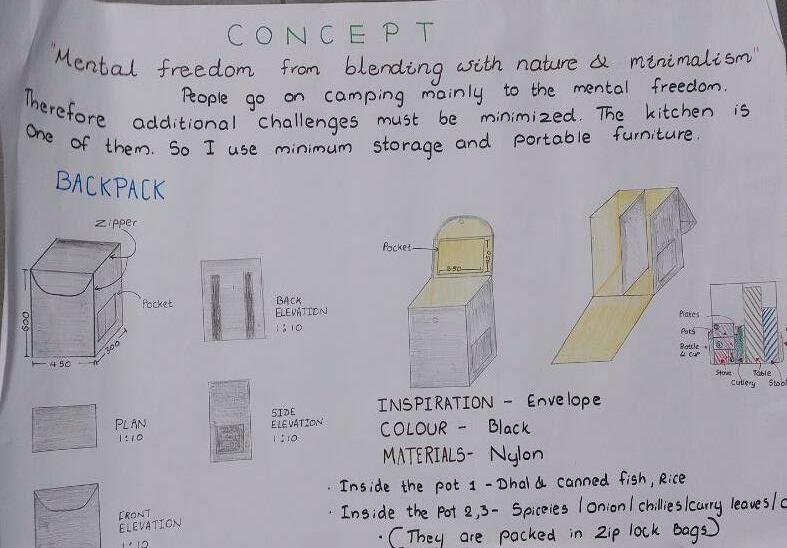 CONCEPT
"Mental freedom from blending with nature & minimalism"
People go on camping mainly to the mental freedom.
Therefore additional challenges must be minimized. The kitchen is
One of them. So I use minimum storage and portable furniture.
BACKPACK
Zipper
Pocket
600
450
300
BACK
ELEVATION
1:10
PLAN
1:10
SIDE
ELEVATION
1:10
FRONT
ELEVATION
1:10
Pocket
350
Plates
Pots
Bottle
& cup
Stove
Table
Cutlery
Stool
INSPIRATION - Envelope
COLOUR - Black
MATERIALS- Nylon
· Inside the pot 1 - Dhal & canned fish, Rice
· Inside the Pot 2,3- Spiceies /onion/chillies/curry leaves/
· (They are packed in Zip lock Bags)